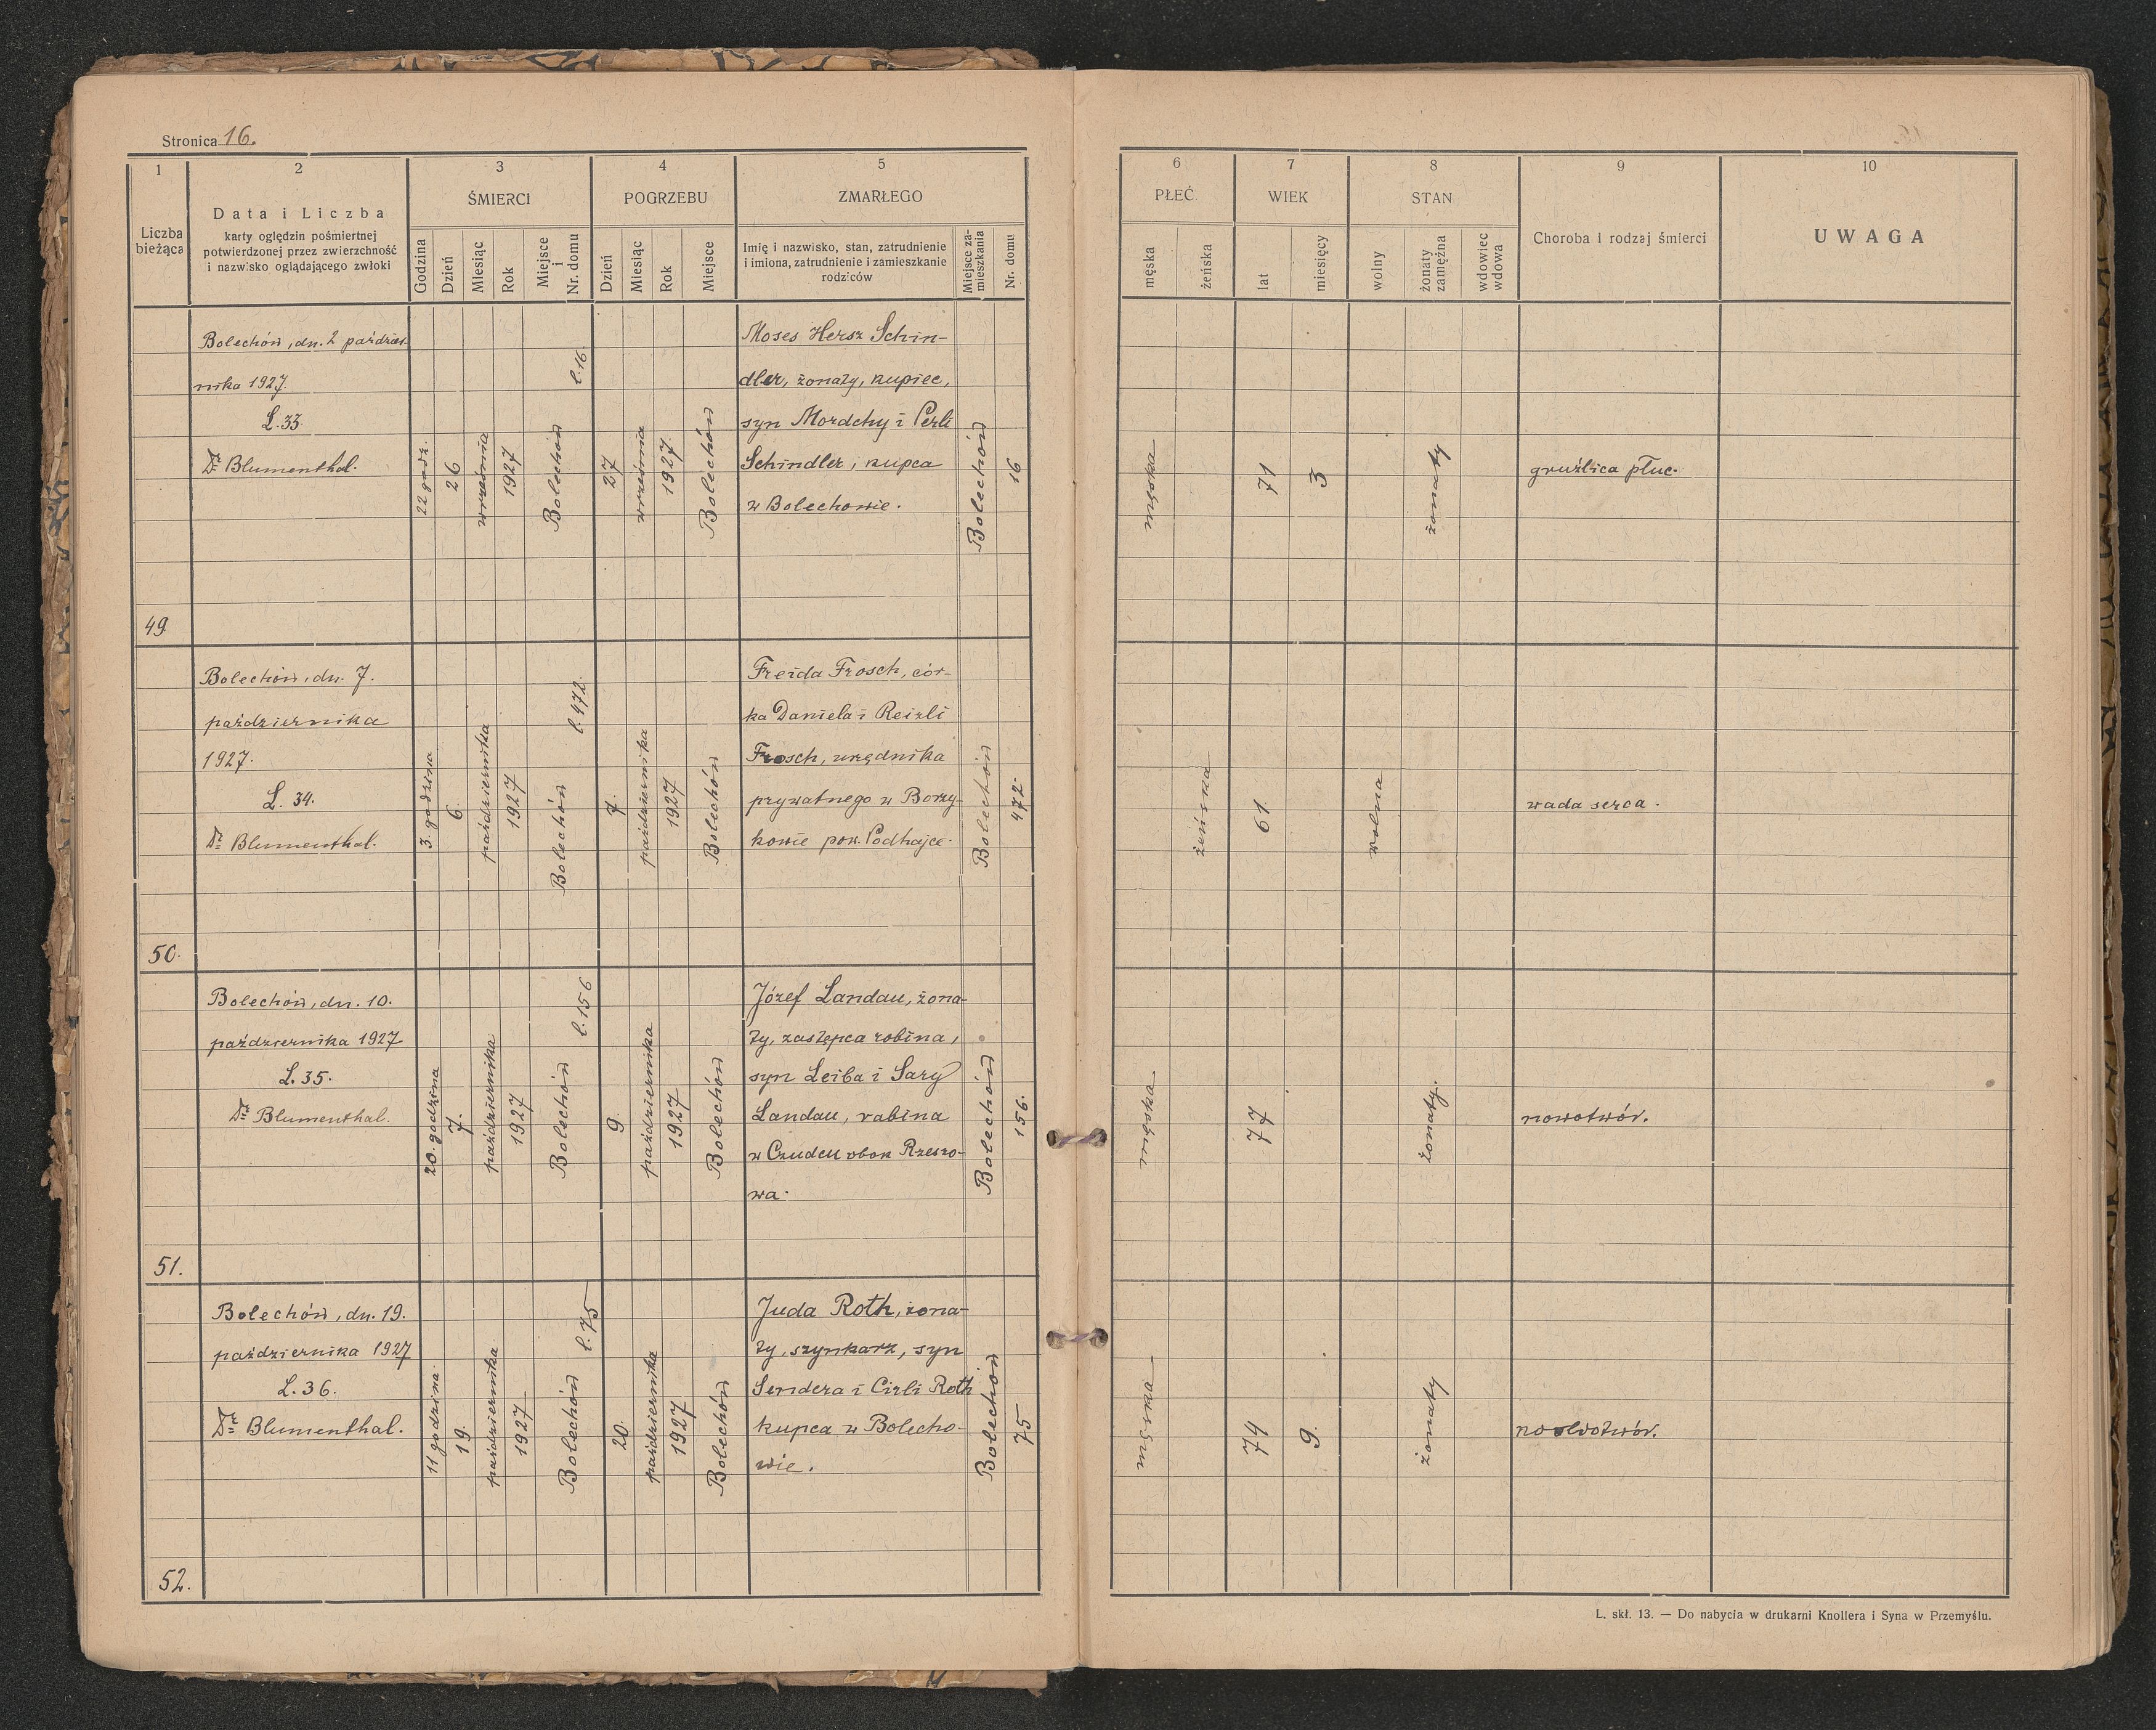 Stronica 16.
1
2
3
4
5
Liczba
bieżąca
Data i Liczba
karty oględzin pośmiertnej
potwierdzonej przez zwierzchność
i nazwisko oglądającego zwłoki
ŚMIERCI
Godzina
Dzień
Miesiąc
Rok
Miejsce
i
Nr. domu
POGRZEBU
Dzień
Miesiąc
Rok
Miejsce
ZMARŁEGO
Imię i nazwisko, stan, zatrudnienie
i imiona, zatrudnienie i zamieszkanie
rodziców
Miejsce za-
mieszkania
Nr. domu
6
7
8
9
10
PŁEĆ
męska
żeńska
WIEK
lat
miesięcy
STAN
wolny
żonaty
zamężna
wdowiec
wdowa
Choroba i rodzaj śmierci
UWAGA
49
Bolechów, dn. 2 paździer
nika 1927.
L. 33.
Dr Blumenthal.
22 godz.
26
września
1927
Bolechów
l. 16.
27
września
1927
Bolechów
Moses Hersz Schin-
dler, żonaty, kupiec,
syn Mordchy i Perli
Schindler, kupca
w Bolechowie.
Bolechów
16
męska
71
3
żonaty
gruźlica płuc.
50.
Bolechów, dn. 7.
października
1927.
L. 34.
Dr Blumenthal.
3. godzina
6.
października
1927
Bolechów
l. 472.
7.
października
1927
Bolechów
Freida Frosch, cór-
ka Daniela i Reizli
Frosch, urzędnika
prywatnego w Borzy-
kowie pow. Podhajce.
Bolechów
472.
żeńska
61
wolna
wada serca.
51.
Bolechów, dn. 10.
października 1927
L. 35.
Dr Blumenthal.
20. godzina
7.
października
1927
Bolechów
l. 156
9.
października
1927
Bolechów
Józef Landau, żona-
ty, zastępca rabina,
syn Leiba i Sary
Landau, rabina
w Czudcu obok Rzeszo-
wa.
Bolechów
156.
męska
77
żonaty.
nowotwór.
52.
Bolechów, dn. 19.
października 1927
L. 36.
Dr Blumenthal.
11 godzina
19.
października
1927
Bolechów
l. 75
20.
października
1927
Bolechów
Juda Roth, żona-
ty, szynkarz, syn
Sendera i Cirli Roth
kupca w Bolecho-
wie.
Bolechów
75
męska
74
9.
żonaty
nowotwór.
L. skł. 13. — Do nabycia w drukarni Knollera i Syna w Przemyślu.